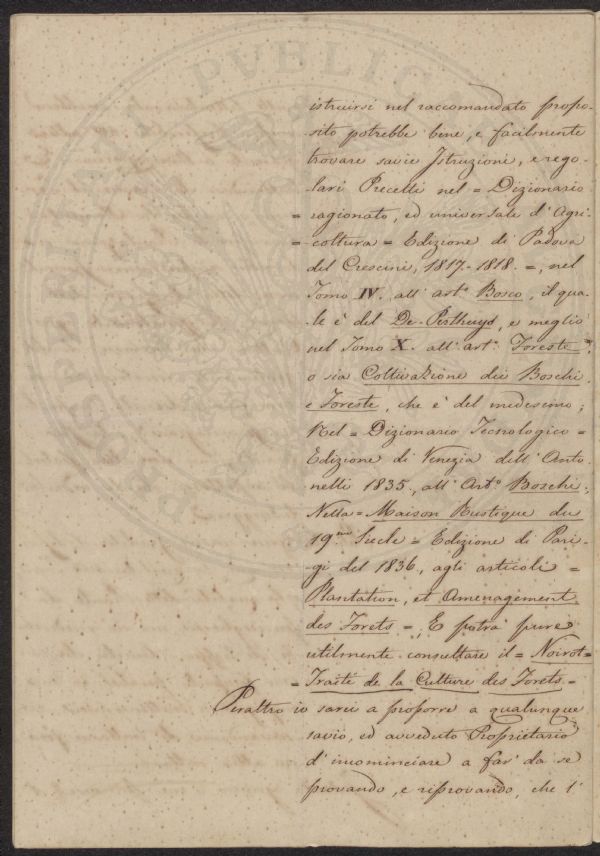 istruirsi nel raccomandato propo-
-sito potrebbe bene, e facilmente
trovare savie Istruzioni, e rego-
-lari Precetti nel = Dizionario
= ragionato, ed universale d'Agri-
= coltura = Edizione di Padova
del Crescini, 1817-1818. =, nel
Tomo IV. all'art.o Bosco, il qua-
-le è del De-Perthuys, e meglio
nel Tomo X. all'art.o Foreste,
o sia Coltivazione dei Boschi,
e Foreste, che è del medesimo;
Nel = Dizionario Tecnologico =
Edizione di Venezia dell'Anto-
nelli 1835, all'Art.o Boschi;
Nella = Maison Rustique du
19me Siecle = Edizione di Pari-
-gi del 1836, agli articoli =
Plantation, et Amenagement
des Forets =, E potrà pure
utilmente consultare il = Noirot =
= Traité de la Culture des Forets =
Peraltro io sarei a proporre a qualunque
savio, ed avveduto Proprietario
d'incominciare a far da se
provando, e riprovando, che l'
PVBLIC